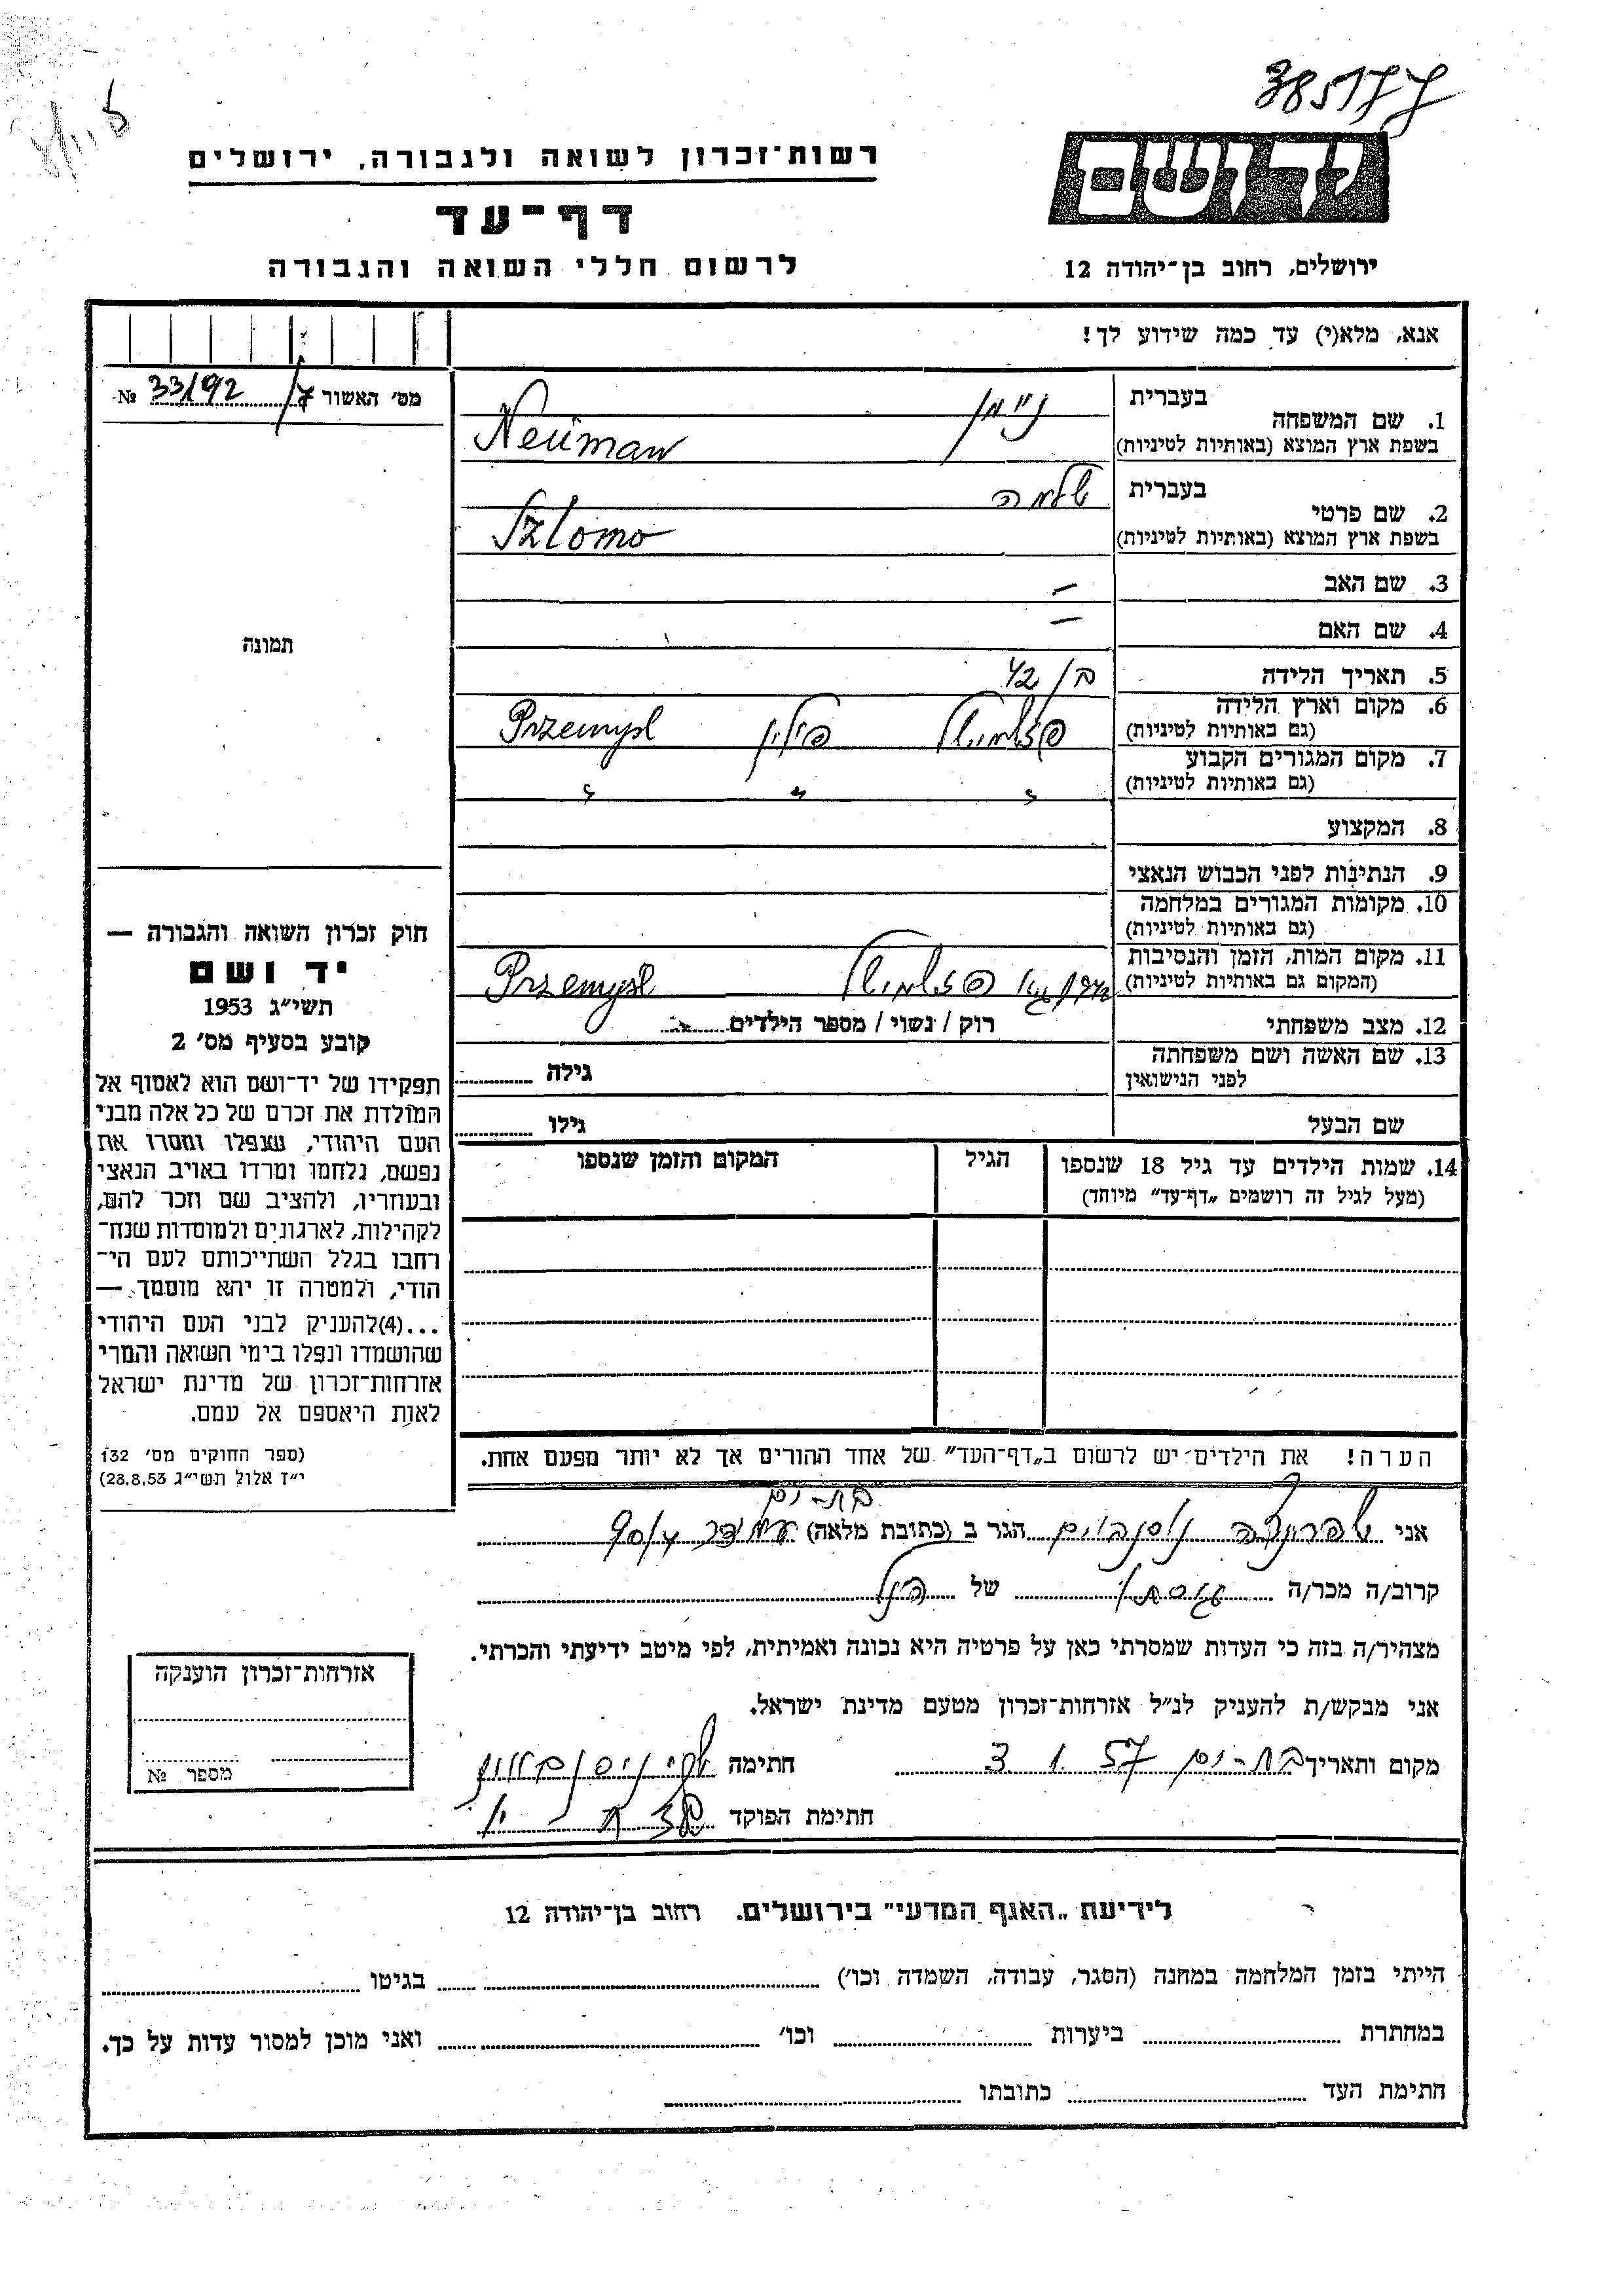 38577
יד ושם
רשות־זכרון לשואה ולגבורה, ירושלים
דף־עד
לרשום חללי השואה והגבורה
ירושלים, רחוב בן־יהודה 12
אנא, מלא(י) עד כמה שידוע לך!
מס׳ האשור № 33/92
1. שם המשפחה
בעברית
ניימן
בשפת ארץ המוצא (באותיות לטיניות)
Neüman
2. שם פרטי
בעברית
שלמה
בשפת ארץ המוצא (באותיות לטיניות)
Szlomo
3. שם האב —
4. שם האם —
5. תאריך הלידה 42
6. מקום וארץ הלידה
(גם באותיות לטיניות)
פשמישל פולין Przemysl
7. מקום המגורים הקבוע
(גם באותיות לטיניות)
" " "
8. המקצוע
9. הנתינות לפני הכבוש הנאצי
10. מקומות המגורים במלחמה
(גם באותיות לטיניות)
11. מקום המות, הזמן והנסיבות
(המקום גם באותיות לטיניות)
Przemysl
12. מצב משפחתי
רוק / נשוי / מספר הילדים
13. שם האשה ושם משפחתה
לפני הנישואין
גילה
שם הבעל
גילו
14. שמות הילדים עד גיל 18 שנספו
(מעל לגיל זה רושמים „דף־עד” מיוחד)
הגיל
המקום והזמן שנספו
הערה! את הילדים יש לרשום ב„דף־העד” של אחד ההורים אך לא יותר מפעם אחת.
תמונה
חוק זכרון השואה והגבורה —
יד ושם
תשי״ג 1953
קובע בסעיף מס׳ 2
תפקידו של יד־ושם הוא לאסוף אל
המולדת את זכרם של כל אלה מבני
העם היהודי, שנפלו ומסרו את
נפשם, נלחמו ומרדו באויב הנאצי
ובעוזריו, ולהציב שם וזכר להם,
לקהילות, לארגונים ולמוסדות שנח־
רבו בגלל השתייכותם לעם הי־
הודי, ולמטרה זו יהא מוסמך —
...(4) להעניק לבני העם היהודי
שהושמדו ונפלו בימי השואה והמרי
אזרחות־זכרון של מדינת ישראל
לאות היאספם אל עמם.
(ספר החוקים מס׳ 132
י״ז אלול תשי״ג 28.8.53)
בת-ים
אני שפרינצה ניסנבוים הגר ב (כתובת מלאה)
קרוב/ה מכר/ה של
מצהיר/ה בזה כי העדות שמסרתי כאן על פרטיה היא נכונה ואמיתית, לפי מיטב ידיעתי והכרתי.
אני מבקש/ת להעניק לנ״ל אזרחות־זכרון מטעם מדינת ישראל.
מקום ותאריך בת-ים 3 1 57 חתימה
חתימת הפוקד
אזרחות־זכרון הוענקה
מספר №
לידיעת „האגף המדעי” בירושלים. רחוב בן־יהודה 12
הייתי בזמן המלחמה במחנה (הסגר, עבודה, השמדה וכו׳) בגיטו
במחתרת ביערות וכו׳ ואני מוכן למסור עדות על כך.
חתימת העד כתובתו